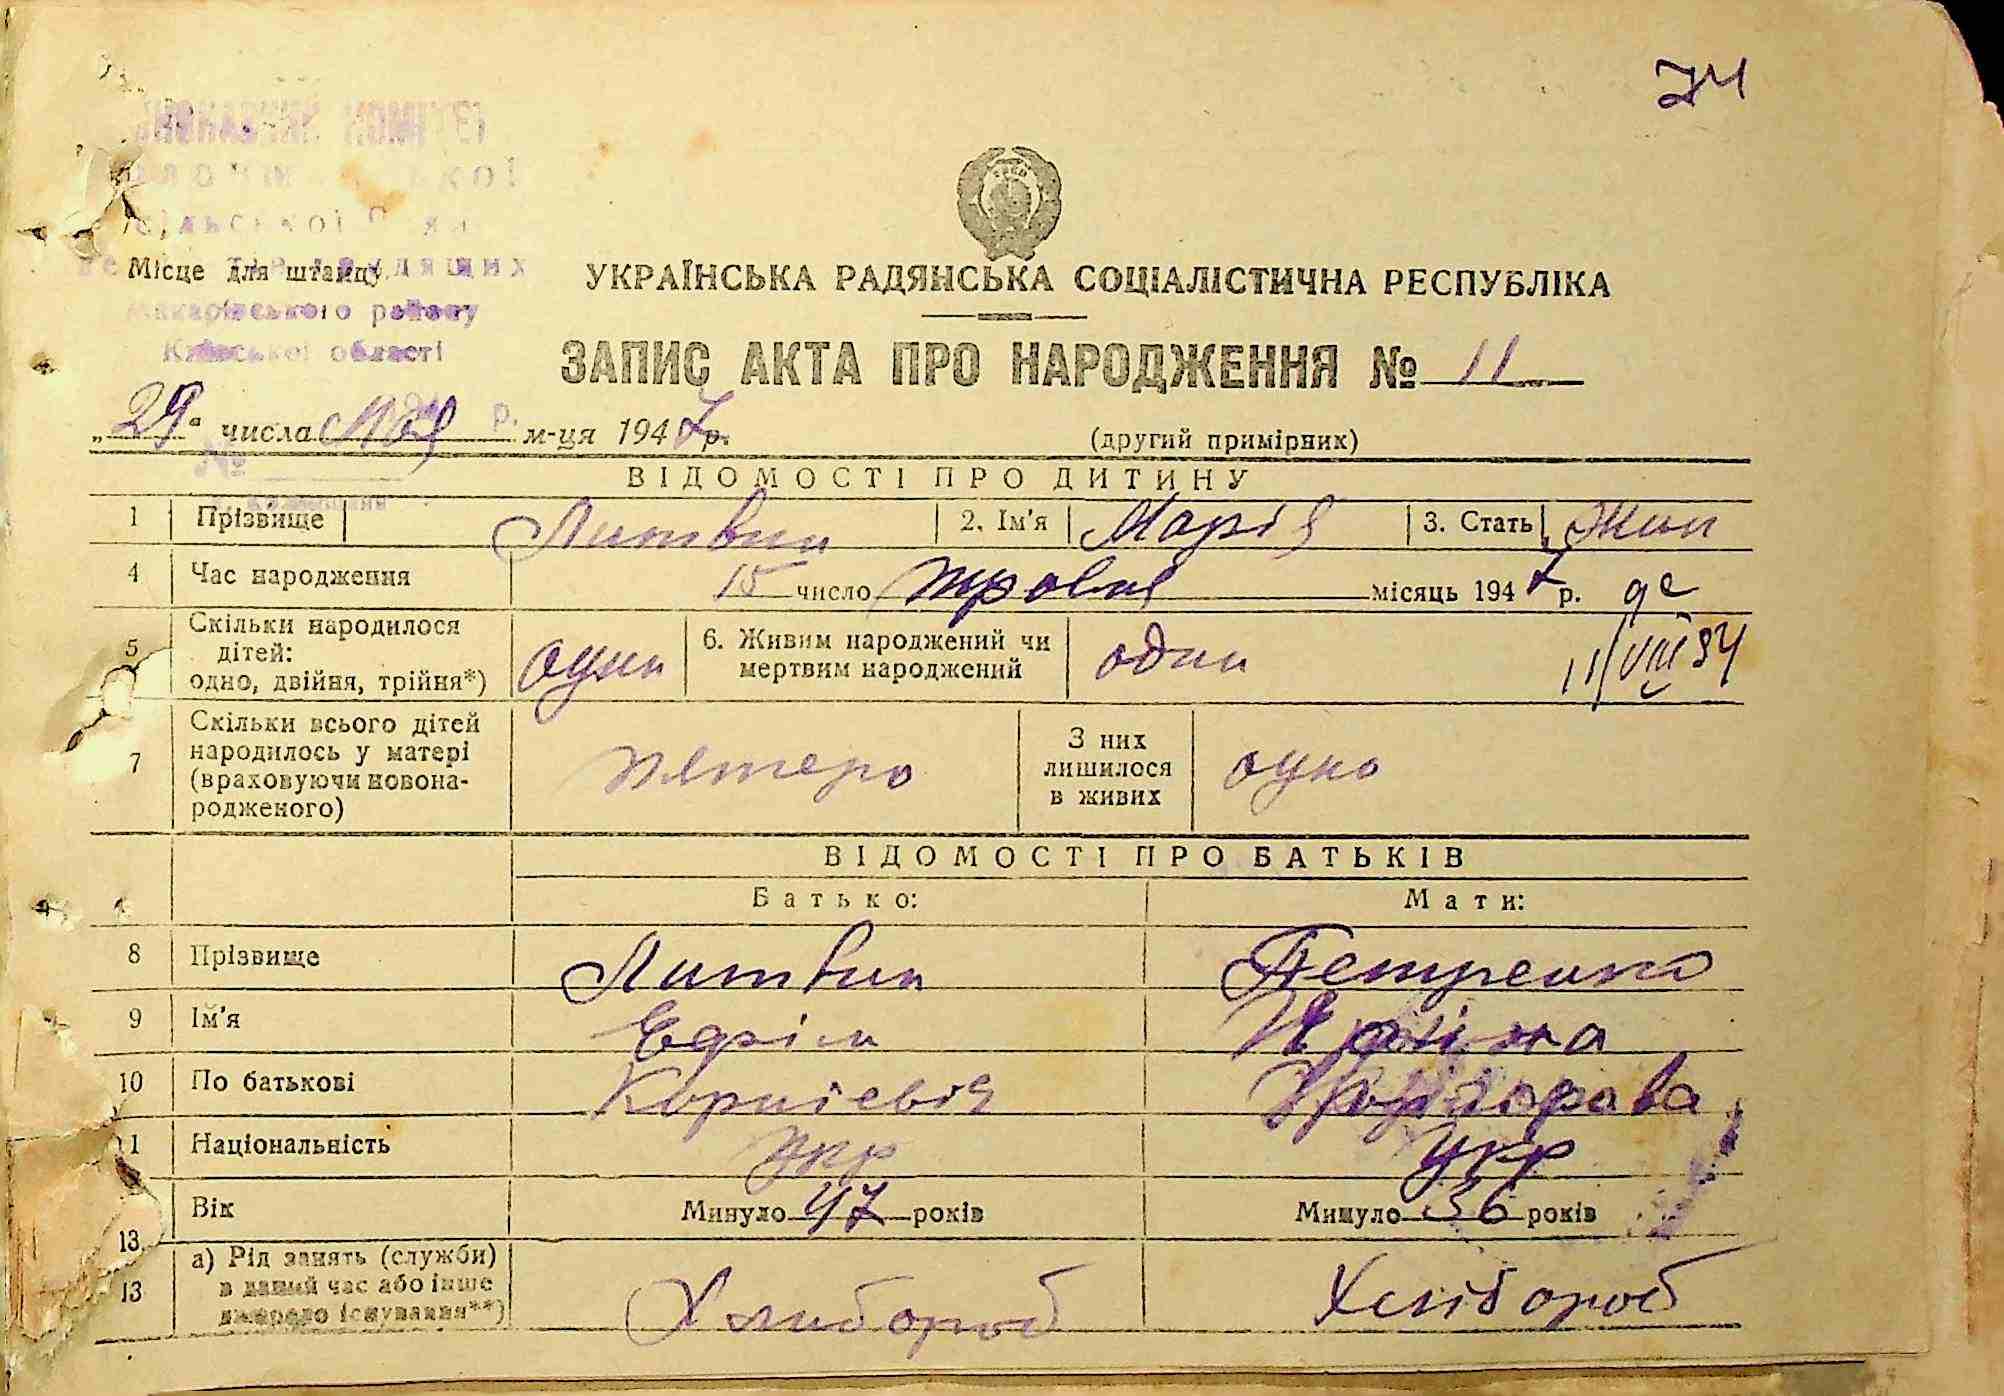 74
сільської Ради
Місце для штампу
УКРАЇНСЬКА РАДЯНСЬКА СОЦІАЛІСТИЧНА РЕСПУБЛІКА
Макарівського району
Київської області
ЗАПИС АКТА ПРО НАРОДЖЕННЯ № 11
„29“ числа мая м-ця 1947 р.
(другий примірник)
№
ВІДОМОСТІ ПРО ДИТИНУ
1 Прізвище Литвин 2. Ім'я Марія 3. Стать жин
4 Час народження 15 число травня місяць 1947 р.
5 Скільки народилося дітей: одно, двійня, трійня*) один 6. Живим народжений чи мертвим народжений один 11/VIII
7 Скільки всього дітей народилось у матері (враховуючи новонародженого) пятеро З них лишилося в живих одно
ВІДОМОСТІ ПРО БАТЬКІВ
Батько: Мати:
8 Прізвище Литвин Петренко
9 Ім'я
10 По батькові Корнієвич
11 Національність Укр Укр
Вік Минуло 47 років Минуло 36 років
13
13 а) Рід занять (служби) в даний час або інше джерело існування**) Хлибороб Хлібороб